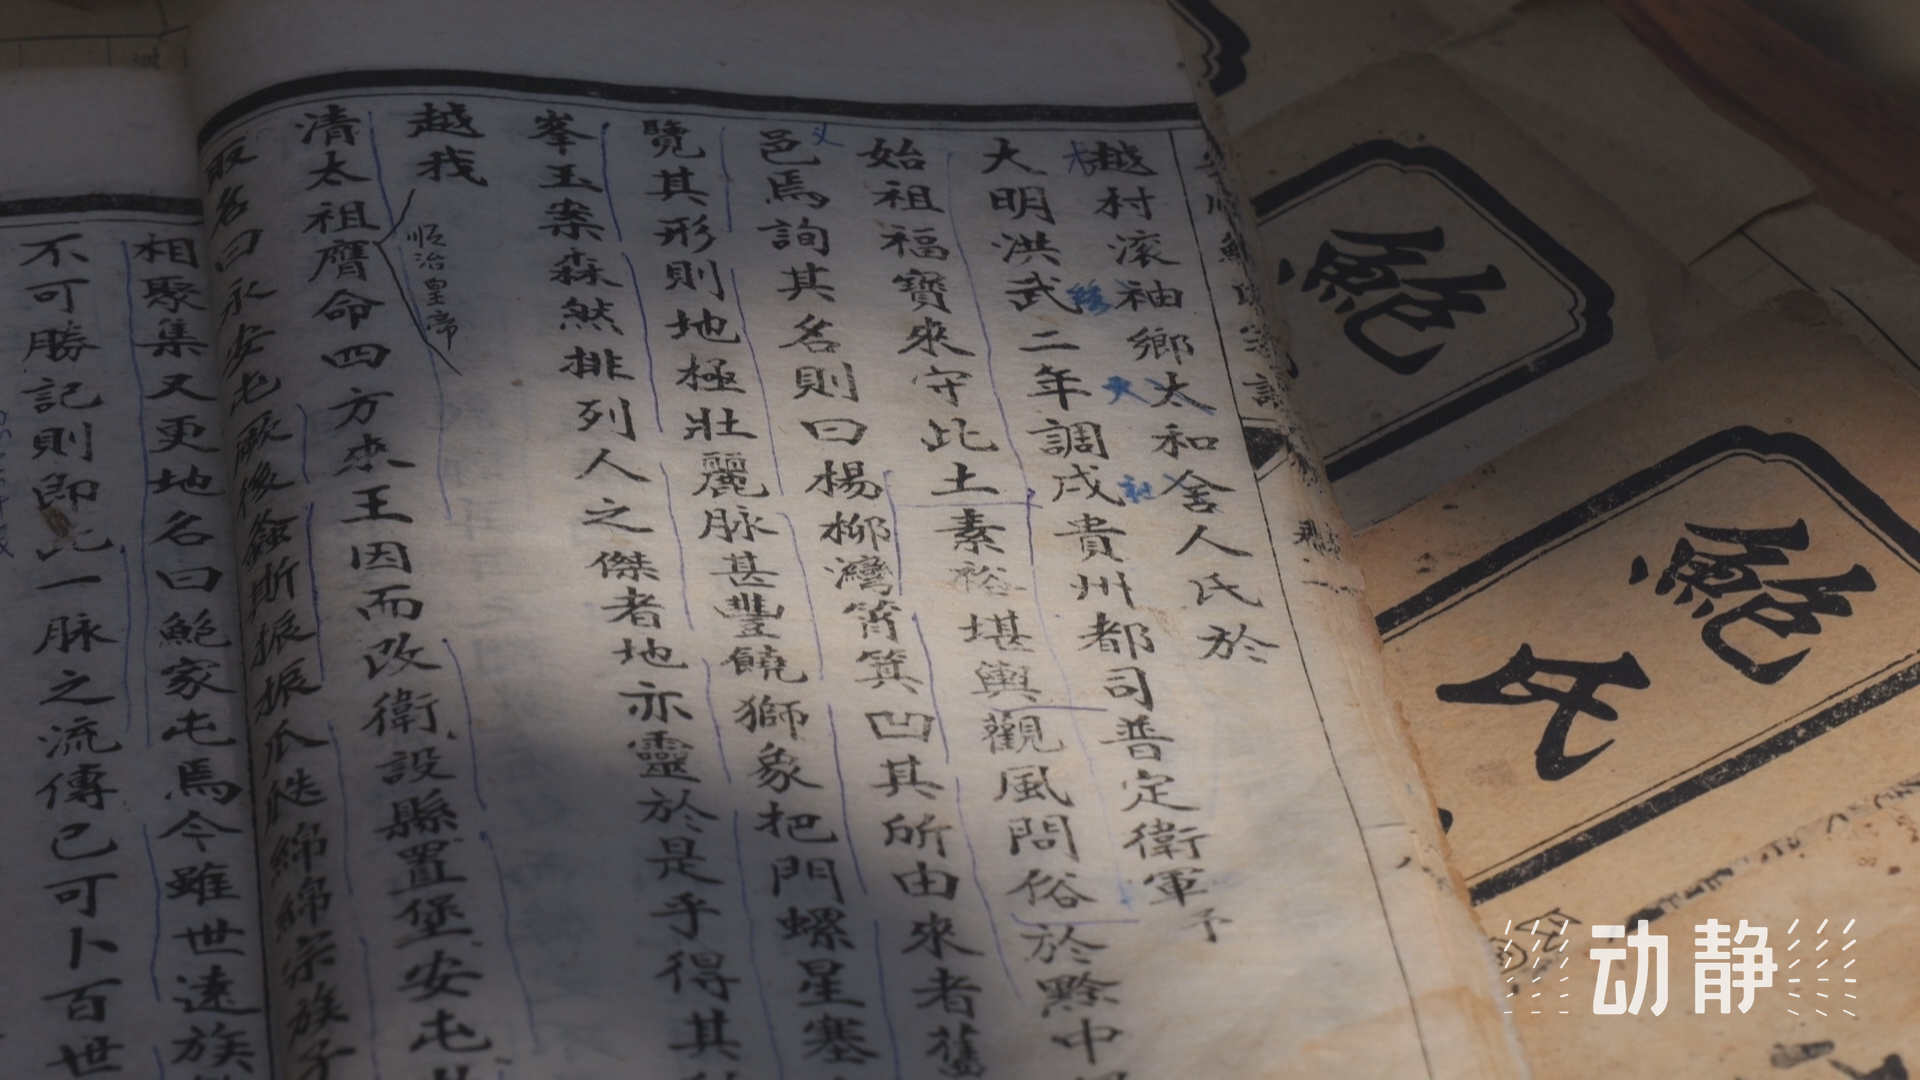 越村滚袖鄉太和舍人氏於
大明洪武二年調戍貴州都司普定衛軍予
始祖福寶來守此土素裕堪輿觀風問俗於黔中
邑焉詢其名則曰楊柳灣筲箕凹其所由來者舊
覽其形則地極壯麗脉甚豐饒獅象把門螺星塞
峯玉案森然排列人之傑者地亦靈於是乎得其
越我
順治皇帝
清太祖膺命四方來王因而改衛設縣置堡安屯
取名曰永安屯厥後螽斯振振瓜瓞綿綿宗族子
相聚集又更地名曰鮑家屯焉今雖世遠族
不可勝記則即此一脉之流傳已可卜百世
鮑
鮑氏
动静